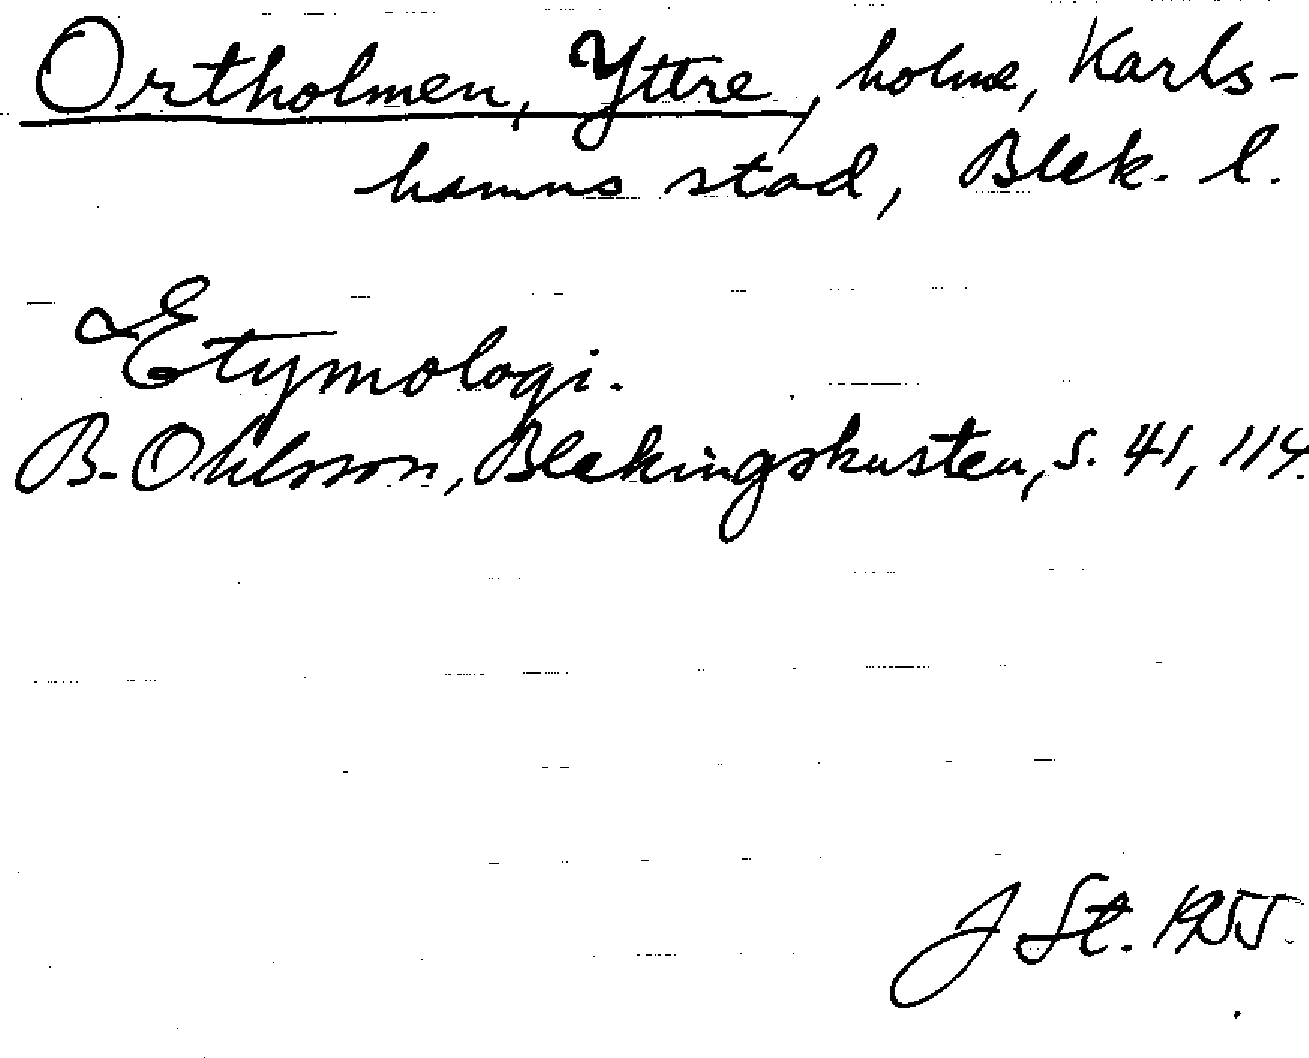 Ortholmen, Yttre, holme, Karls-
hamns stad, Blek. l.
Etymologi.
B. Ohlsson, Blekingskusten, s. 41, 114.
J St. 1955.